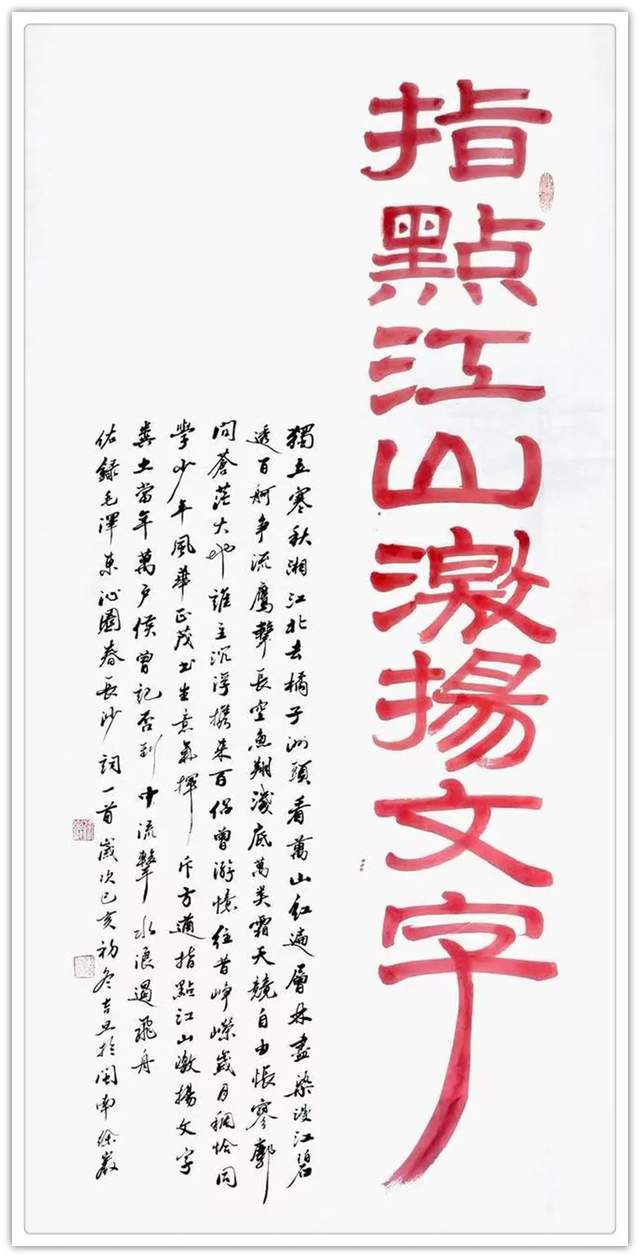 指點江山激揚文字
獨立寒秋湘江北去橘子洲頭看萬山红遍層林盡染漫江碧
透百舸争流鹰擊長空魚翔淺底萬类霜天競自由悵寥廓
问蒼茫大地誰主沉浮攜来百侣曾游憶往昔崢嶸歲月稠恰同
學少年風華正茂书生意氣揮斥方遒指點江山激揚文字
糞土當年萬户侯曾記否到中流擊水浪遏飛舟
佑録毛澤東沁園春長沙詞一首歲次己亥初冬吉旦於閩南徐